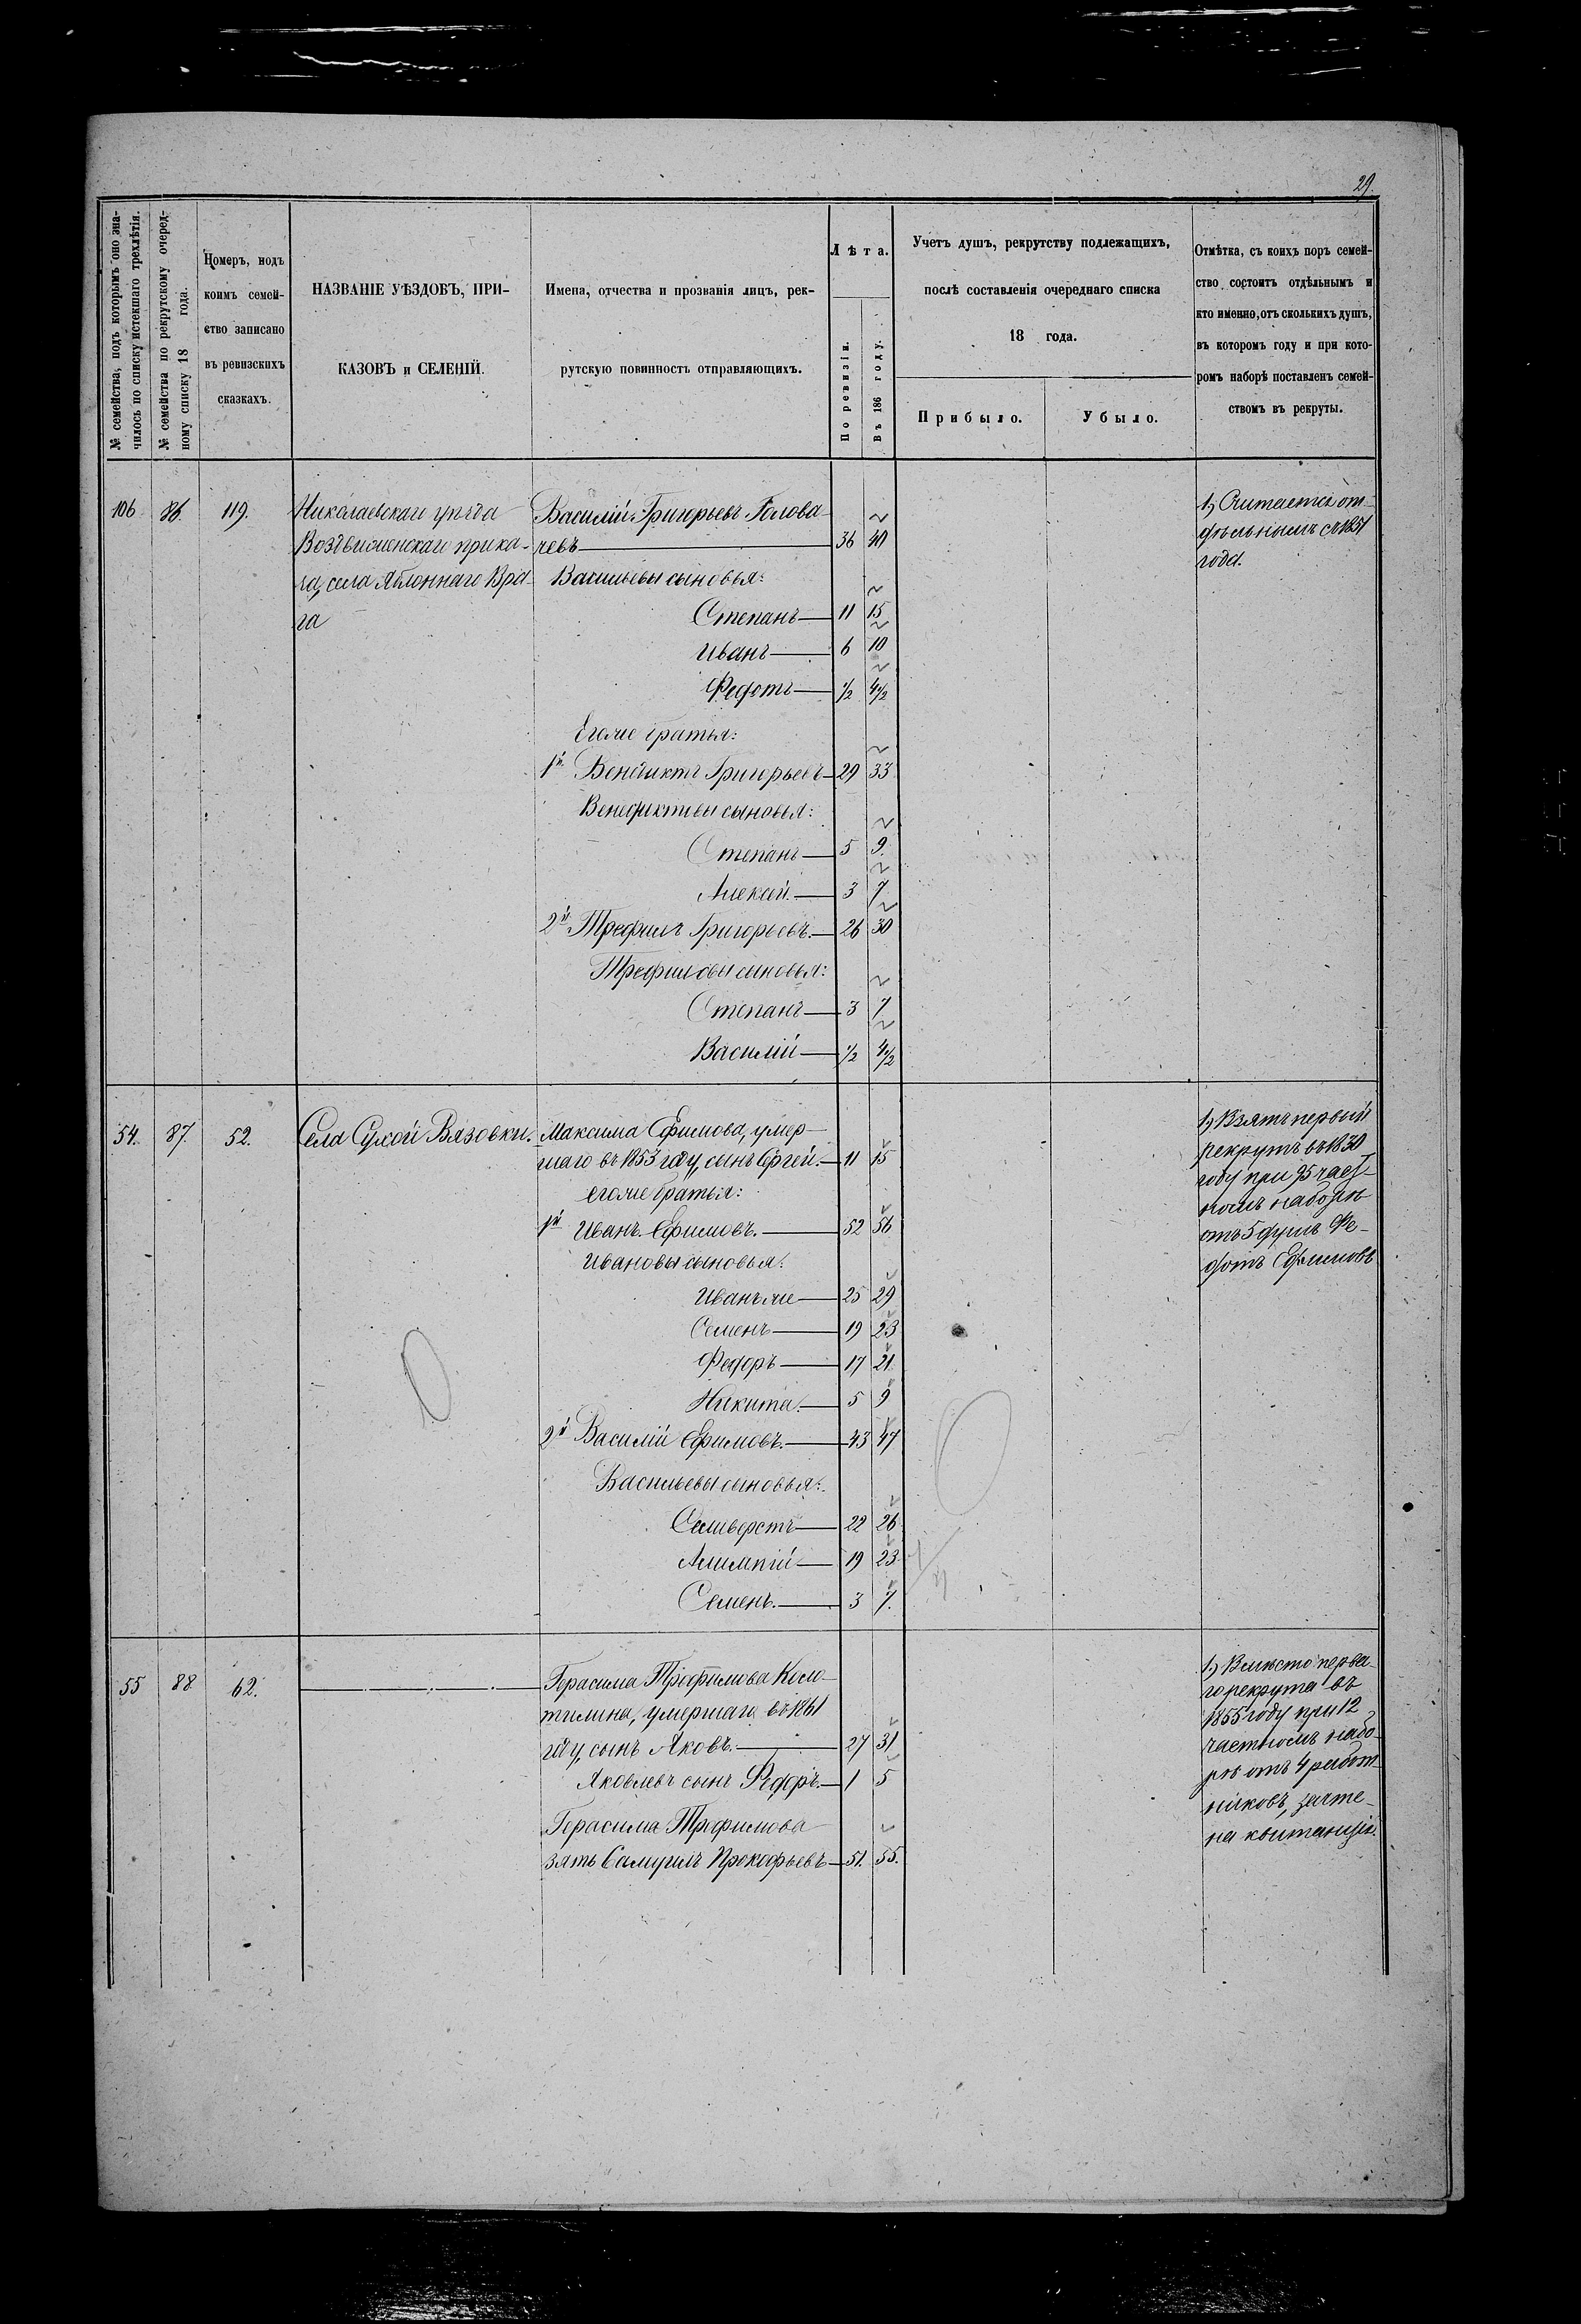 29.
№ семейства, подъ которымъ оно зна-
чилось по списку истекшаго трехлѣтія.
№ семейства по рекрутскому очеред-
ному списку 18 года.
Номеръ, подъ
коимъ семей-
ство записано
въ ревизскихъ
сказкахъ.
НАЗВАНІЕ УѢЗДОВЪ, ПРИ-
КАЗОВЪ и СЕЛЕНІЙ.
Имена, отчества и прозванія лицъ, рек-
рутскую повинность отправляющихъ.
Лѣта.
По ревизіи.
Въ 186 году.
Учетъ душъ, рекрутству подлежащихъ,
послѣ составленія очереднаго списка
18 года.
Прибыло.
Убыло.
Отмѣтка, съ коихъ поръ семей-
ство состоитъ отдѣльнымъ и
кто именно, отъ сколькихъ душъ,
въ которомъ году и при кото-
ромъ наборѣ поставленъ семей-
ствомъ въ рекруты.
106. 86. 119. Николаевскаго уѣзда
Воздвиженскаго прика-
за, села Яблоннаго Вра-
га
Василій Григорьевъ Голова-
чевъ 36 40
Васильевы сыновья:
Степанъ 11 15
Иванъ 6 10
Федотъ 1/2 4 1/2
Его же братья:
1й Венедиктъ Григорьевъ 29 33
Венедиктовы сыновья:
Степанъ 5 9.
Алексѣй 3 7
2й Трефилъ Григорьевъ. 26 30
Трефиловы сыновья:
Степанъ 3 7
Василій 1/2 4 1/2
1, Считается от-
дѣльнымъ съ 1851
года.
54. 87. 52. Села Сухой Вязовки.
Максима Ефимова, умер-
шаго въ 1853 году, сынъ Сергей. 11 15
его же братья:
1й Иванъ Ефимовъ. 52 56
Ивановы сыновья:
Иванъ же 25 29
Семенъ 19 23
Федоръ 17 21.
Никита. 5 9
2й Василій Ефимовъ. 43 47
Васильевы сыновья:
Селиверстъ 22 26
Алимпій 19 23
Семенъ. 3 7.
1, Взятъ первый
рекрутъ въ 1830
году при 95 част-
номъ наборѣ
отъ 5 душъ Фе-
дотъ Ефимовъ
55 88 62.
Герасима Трофимова Коло-
тилина, умершаго въ 1861
году, сынъ Яковъ. 27 31
Яковлевъ сынъ Федоръ. 1 5
Герасима Трофимова
зять Самуилъ Прокофьевъ 51. 55.
1, Вмѣсто перва-
го рекрута въ
1855 году при 12
частномъ набо-
рѣ отъ 4 работ-
никовъ, зачте-
на квитанція.